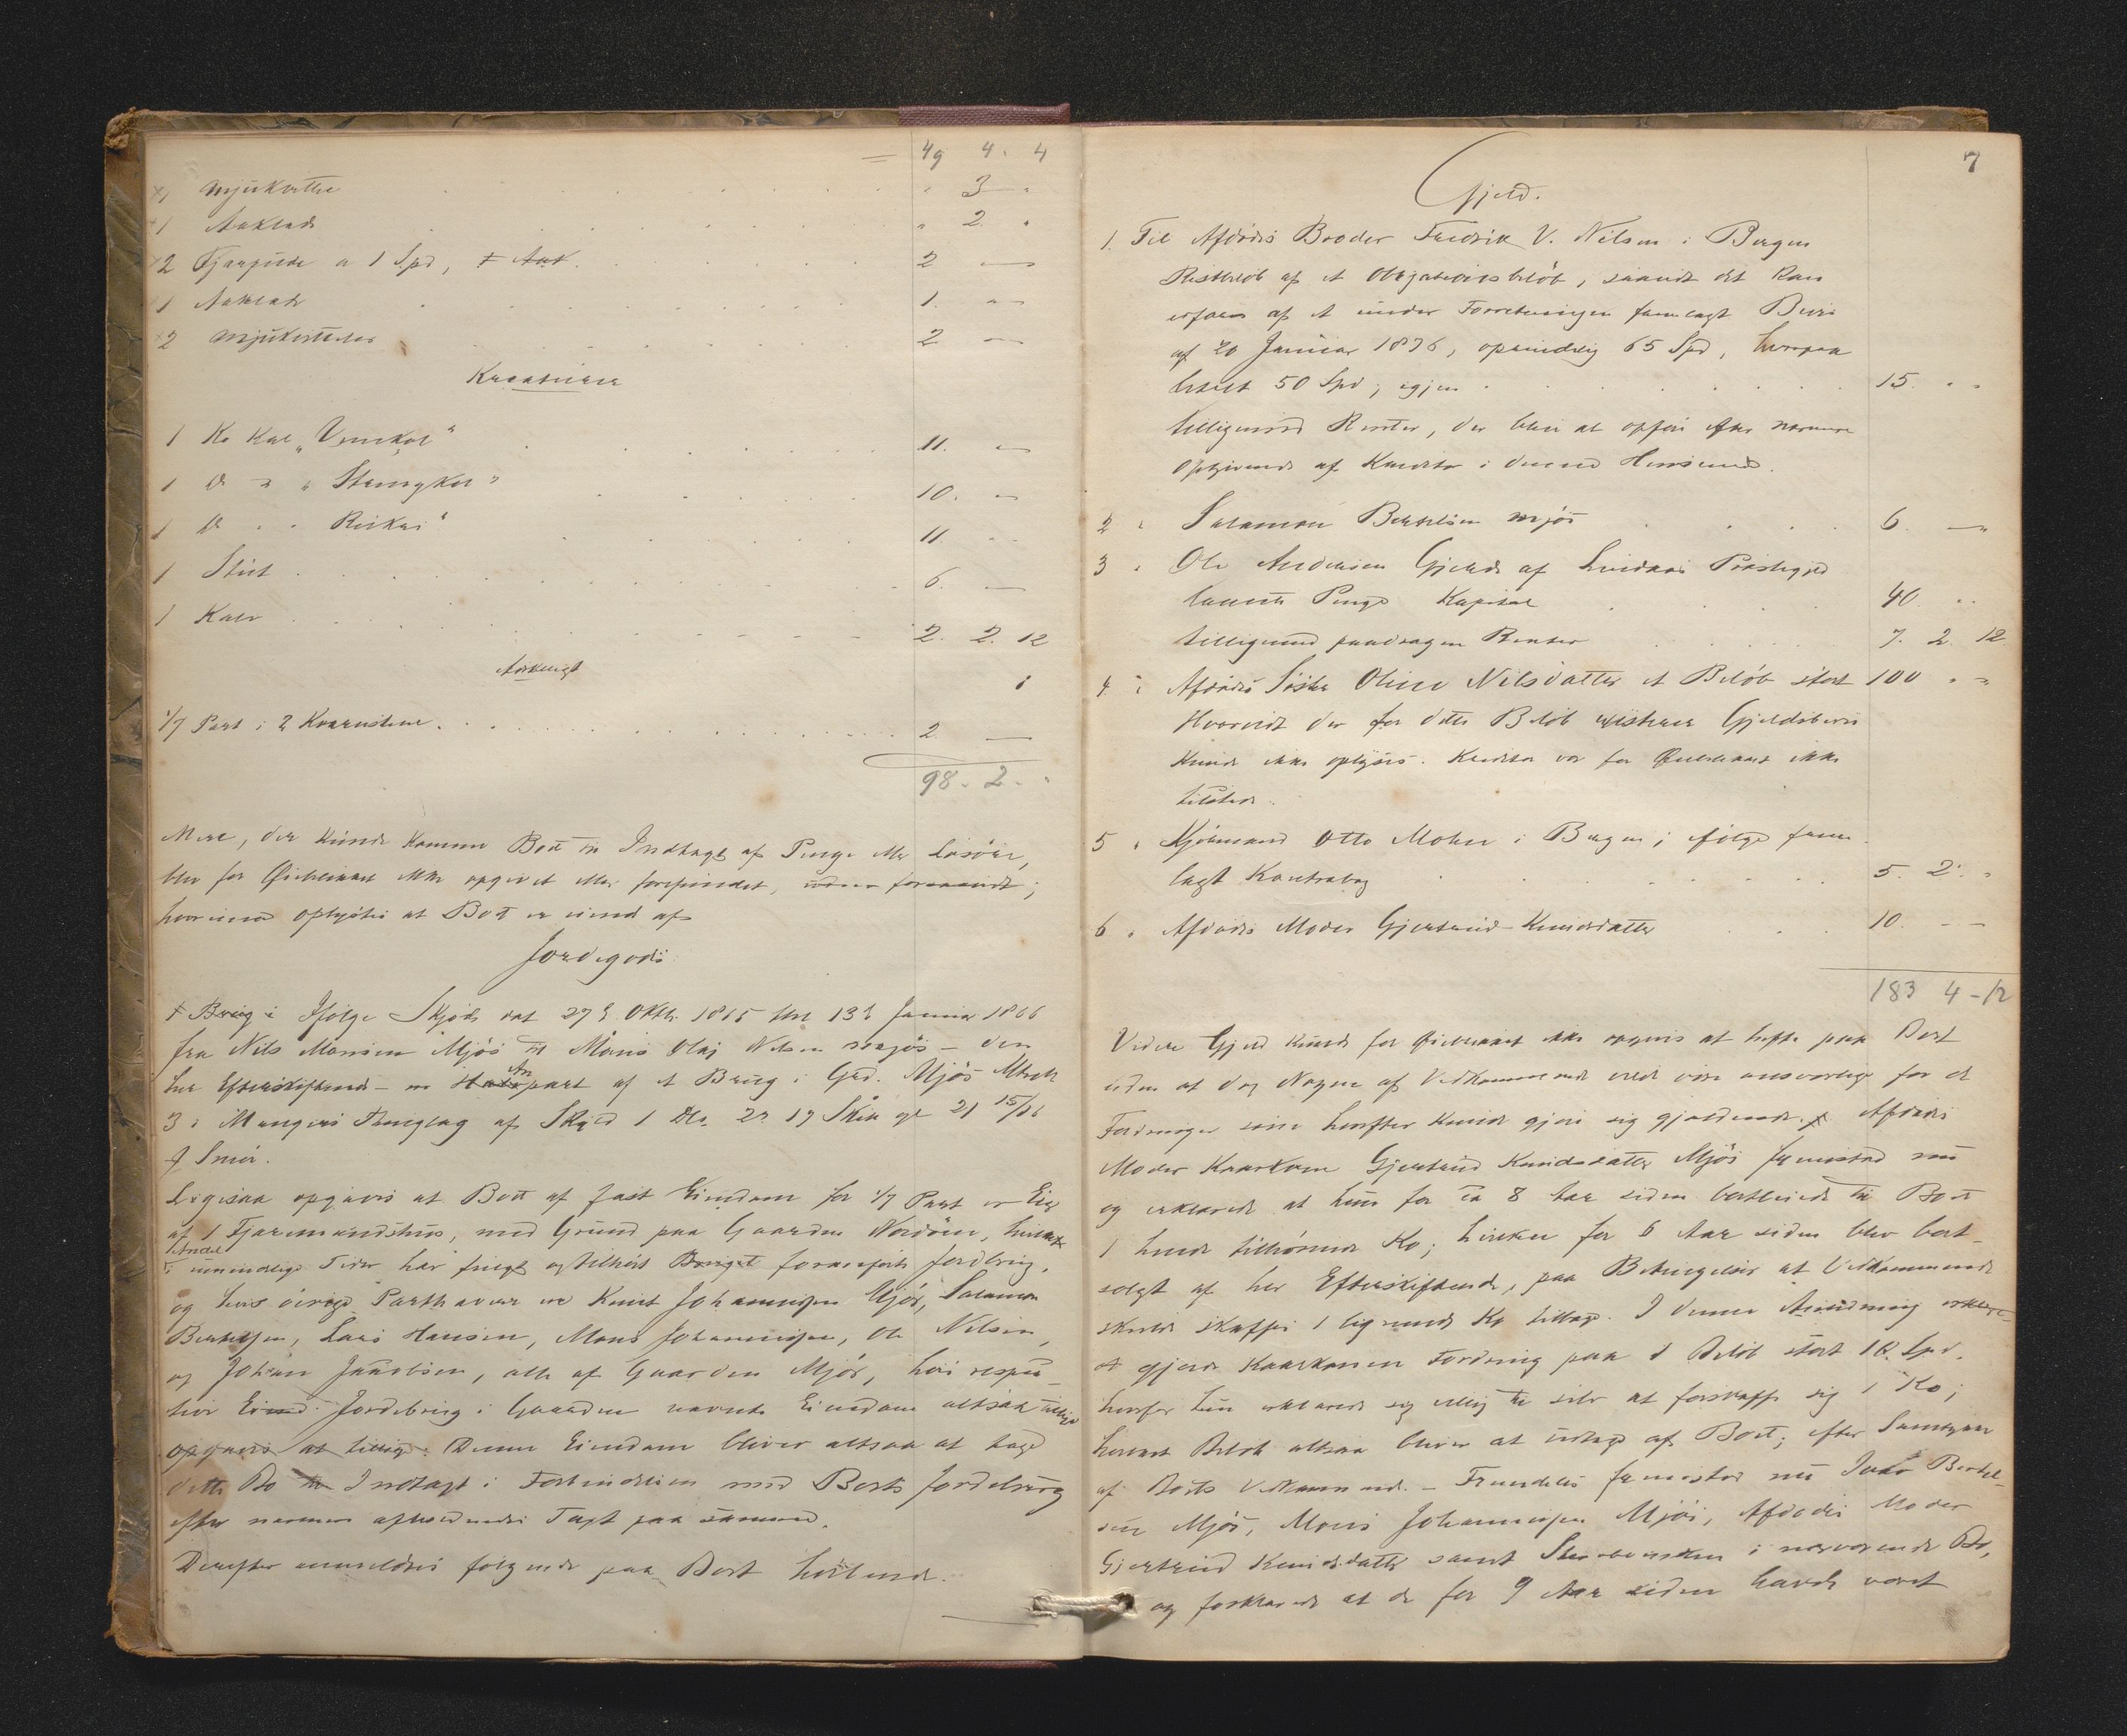 49 4. 4
1 Mjukvette " 3 "
1 Aaklæde " 2. "
2 Fjærpude a 1 Spd, 2
1 Aaklæde 1.
2 2
Kreaturer
1 Ko Kal. "Vennkol" 11.
1 D " "Stjernkol" 10.
1 D " " 11
1 Stut 6.
1 Kalv 2. 2. 12
1/7 Part i 2 Kværnstene 2
98. 2.
Mere, der kunde komme Boet til Indtægt af Penge eller Løsøre,
blev for Øieblikket ikke opgivet eller forefundet, uden foranævnt;
hvorimod oplystes at Boet er eiend af
Jordegods
Brug i Ifølge Skjøde dat 27de Oktbr. 1865 thl 13de Januar 1866
fra Nils Monsen Mjøs til Mons Olai Nilsen Mjøs - den
her Efterskiftende - en part af et Brug i Grd. Mjøs Mtrk
3 i Mangers Thinglag af Skyld 1 Dlr. 2 19 Skill gl 21 15/16
Smør.
Ligesaa opgaves at Boet af fast Eiendom for 1/7 Part er Eier
af 1 Fjæremandshus, med Grund paa Gaarden Nordøen, hvilket
Andel
i umindelige Tider har fulgt og tilhørt Bruget foranførte Jordbrug.
og hvis øvrige Parthavere ere Knut Johannessen Mjøs, Salamon
Berthelsen, Lars Hansen, Mons Johannessen, Ole Nilsen,
og Johan Jakobsen, alle af Gaarden Mjøs, hvis respek-
tive Eiend. Jordebrug i Gaarden nævnte Eiendom altsaa tillige
opgaves at tillige. Denne Eiendom bliver altsaa at tage
dette Bo til Indtægt i Forbindelsen med Boets Jordebrug
efter nærmere afholdendes Taxt paa samme.
Derefter anmeldtes følgende paa Boet heftende.
7
Gjeld.
1. Til Afdødes Broder Fredrik V. Nilsen i Bergen
Restbeløb af et Obligationsbeløb, saavidt det kan
erfares af et under Forretningen fremlagt Bevis
af 20 Januar 1876, oprindelig 65 Spd, hvorpaa
betalt 50 Spd; igjen 15. " "
tilligemed Renter, der bliver at opføre efter nærmere
Opgivende af Kreditor i denne Henseende.
2 " Salamon Berthelsen Mjøs 6.
3 " Ole Andersen Gjelde af Lindaas Præstegjeld
laante Penge Kapital 40 " "
tilligemed paadragne Renter 7. 2. 12
4 " Afdødes Søster Oline Nilsdatter et Beløb stort 100 " "
Hvorvidt der for dette Beløb existerer Gjeldsbevis
kunde ikke oplyses. Kreditor var for Øieblikket ikke
tilstede.
5 " Kjøbmand Otto Mohn i Bergen; ifølge frem-
lagt Kontrabog 5. 2. "
6 " Afdødes Moder Gjertrud Knudsdatter 10.
183 4 - 12
Videre Gjeld kunde for Øieblikket ikke opgives at hefte paa Boet
uden at dog Nogen af Vedkommende vilde være ansvarlige for de
Fordringer som herefter kunde gjøre sig gjældende. Afdødes
Moder Kaarkone Gjertrud Knudsdatter Mjøs fremstod nu
og erklærede at hun for ca 8 Aar siden bortleiede til Boet
1 hende tilhørende Ko; hvilken for 6 Aar siden blev bort-
solgt af her Efterskiftende, paa Betingelse at Vedkommende
skulde skaffes 1 lignende Ko tilbage. I denne Anledning
gjorde Kaarkonen Fordring paa et Beløb stort 10. Spd,
hvorfor hun erklærede sig villig til selv at forskaffe sig 1 Ko;
hvilket Beløb altsaa bliver at udtage af Boet; efter Samtykke
af Boets Vedkommende. - Fremdeles fremstod nu Berthel-
sen Mjøs, Mons Johannessen Mjøs, Afdødes Moder
Gjertrud Knudsdatter samt i nærværende Bo,
og forklarede at de for 9 Aar siden havde været